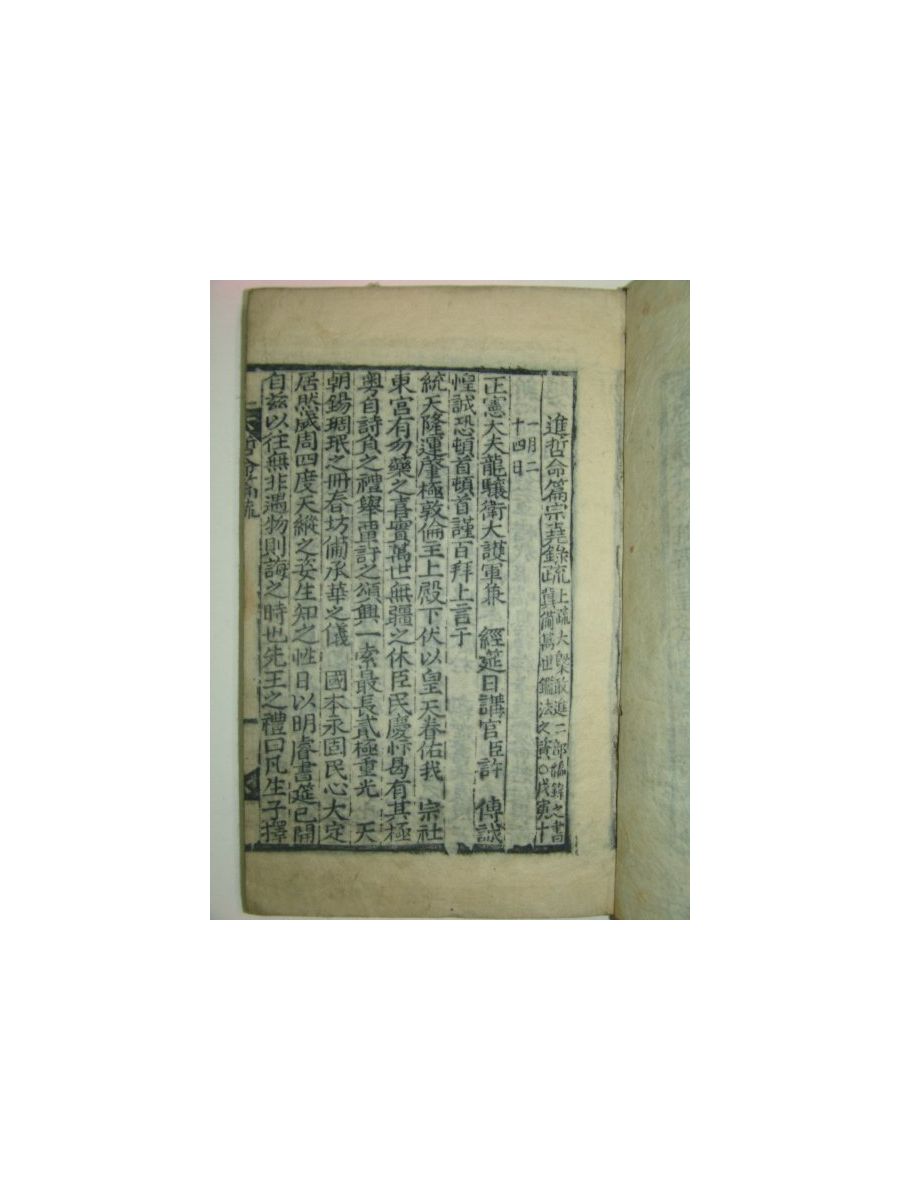 進哲命篇宗堯錄疏 上疏大槩敢進二部編緝之書
冀備萬世鑑法之資○戊寅十
一月二
十四日
正憲大夫龍驤衛大護軍兼 經筵日講官臣許 傳誠
惶誠恐頓首頓首謹百拜上言于
統天隆運肇極敦倫主上殿下伏以皇天眷佑我 宗社
東宮有勿藥之喜實萬世無疆之休臣民慶忭曷有其極
粤自詩負之禮擧重訏之頌興一索最長貳極重光 天
朝錫琱珉之冊春坊備承華之儀 國本永固民心大定
居然歲周四度天縱之姿生知之性日以明睿書筵已開
自玆以往無非遇物則誨之時也先王之禮曰凡生子擇
哲命篇疏